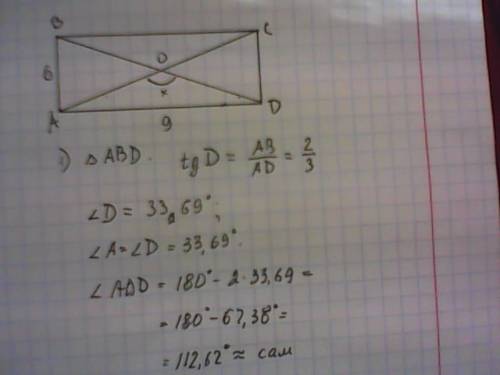 B C
6 O
x
A D
9
1) △ABD. tg D = AB/AD = 2/3
∠D = 33,69°;
∠A = ∠D = 33,69°.
∠AOD = 180° - 2·33,69 =
= 180° - 67,38° =
= 112,62° ≈ сам